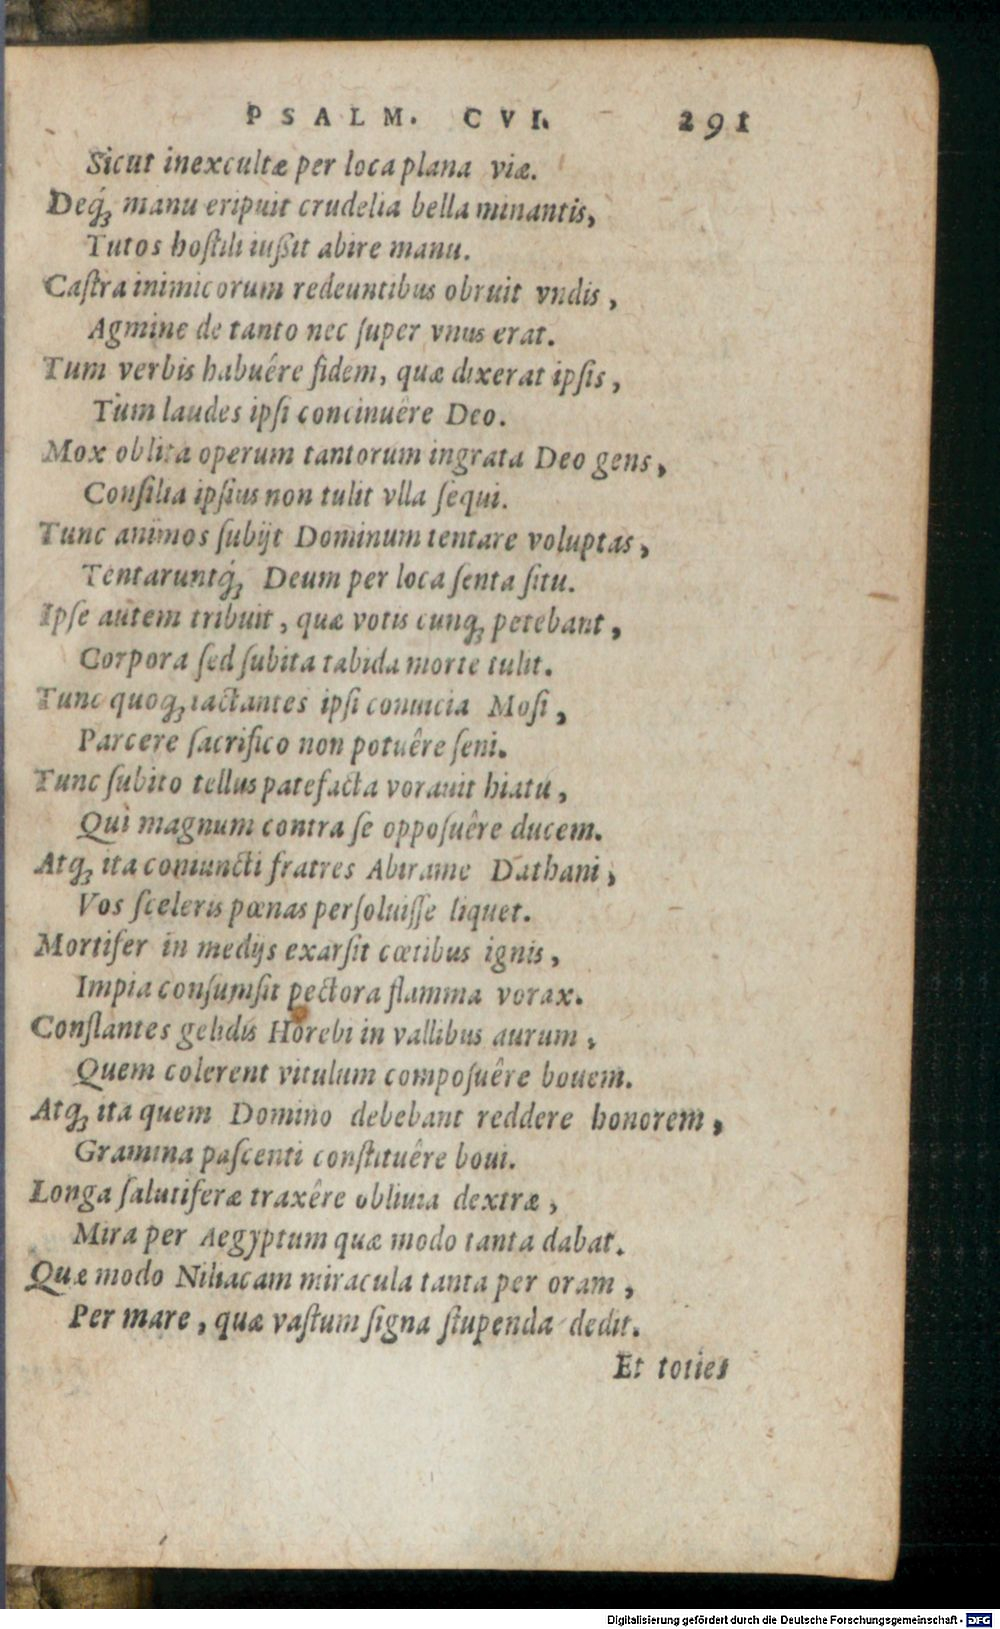 PSALM. CVI. 291
Sicut inexcultæ per loca plana viæ.
Deq́ꝫ manu eripuit crudelia bella minantis,
Tutos hoſtili iußit abire manu.
Caſtra inimicorum redeuntibus obruit vndis,
Agmine de tanto nec ſuper vnus erat.
Tum verbis habuêre fidem, quæ dixerat ipſis,
Tum laudes ipſi concinuêre Deo.
Mox oblita operum tantorum ingrata Deo gens,
Conſilia ipſius non tulit vlla ſequi.
Tunc animos ſubijt Dominum tentare voluptas,
Tentaruntq́ꝫ Deum per loca ſenta ſitu.
Ipſe autem tribuit, quæ votis cunqꝫ petebant,
Corpora ſed ſubita tabida morte tulit.
Tunc quoqꝫ iactantes ipſi conuicia Moſi,
Parcere ſacrifico non potuêre ſeni.
Tunc ſubito tellus patefacta vorauit hiatu,
Qui magnum contra ſe oppoſuêre ducem.
Atqꝫ ita coniuncti fratres Abirame Dathani,
Vos ſceleris pœnas perſoluiſſe liquet.
Mortifer in medijs exarſit cœtibus ignis,
Impia conſumſit pectora flamma vorax.
Conflantes gelidis Horebi in vallibus aurum,
Quem colerent vitulum compoſuêre bouem.
Atqꝫ ita quem Domino debebant reddere honorem,
Gramina paſcenti conſtituêre boui.
Longa ſalutiferæ traxêre obliuia dextræ,
Mira per Aegyptum quæ modo tanta dabat.
Quæ modo Niliacam miracula tanta per oram,
Per mare, quæ vaſtum ſigna ſtupenda dedit.
Et toties
Digitalisierung gefördert durch die Deutsche Forschungsgemeinschaft - DFG